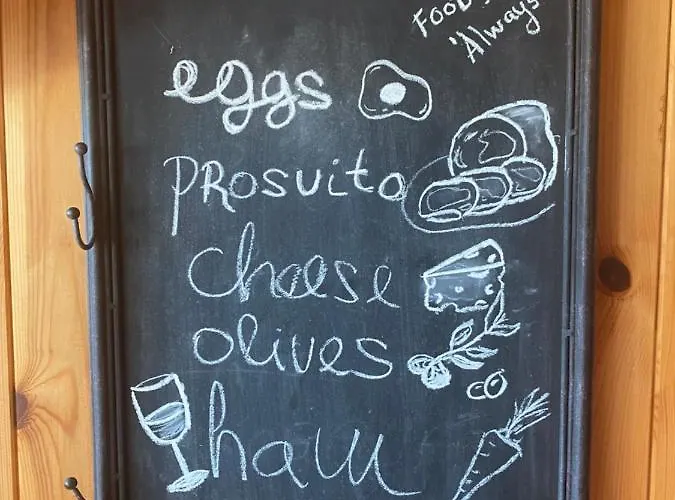 Food
"Always
eggs
PRosuito
cheese
olives
ham